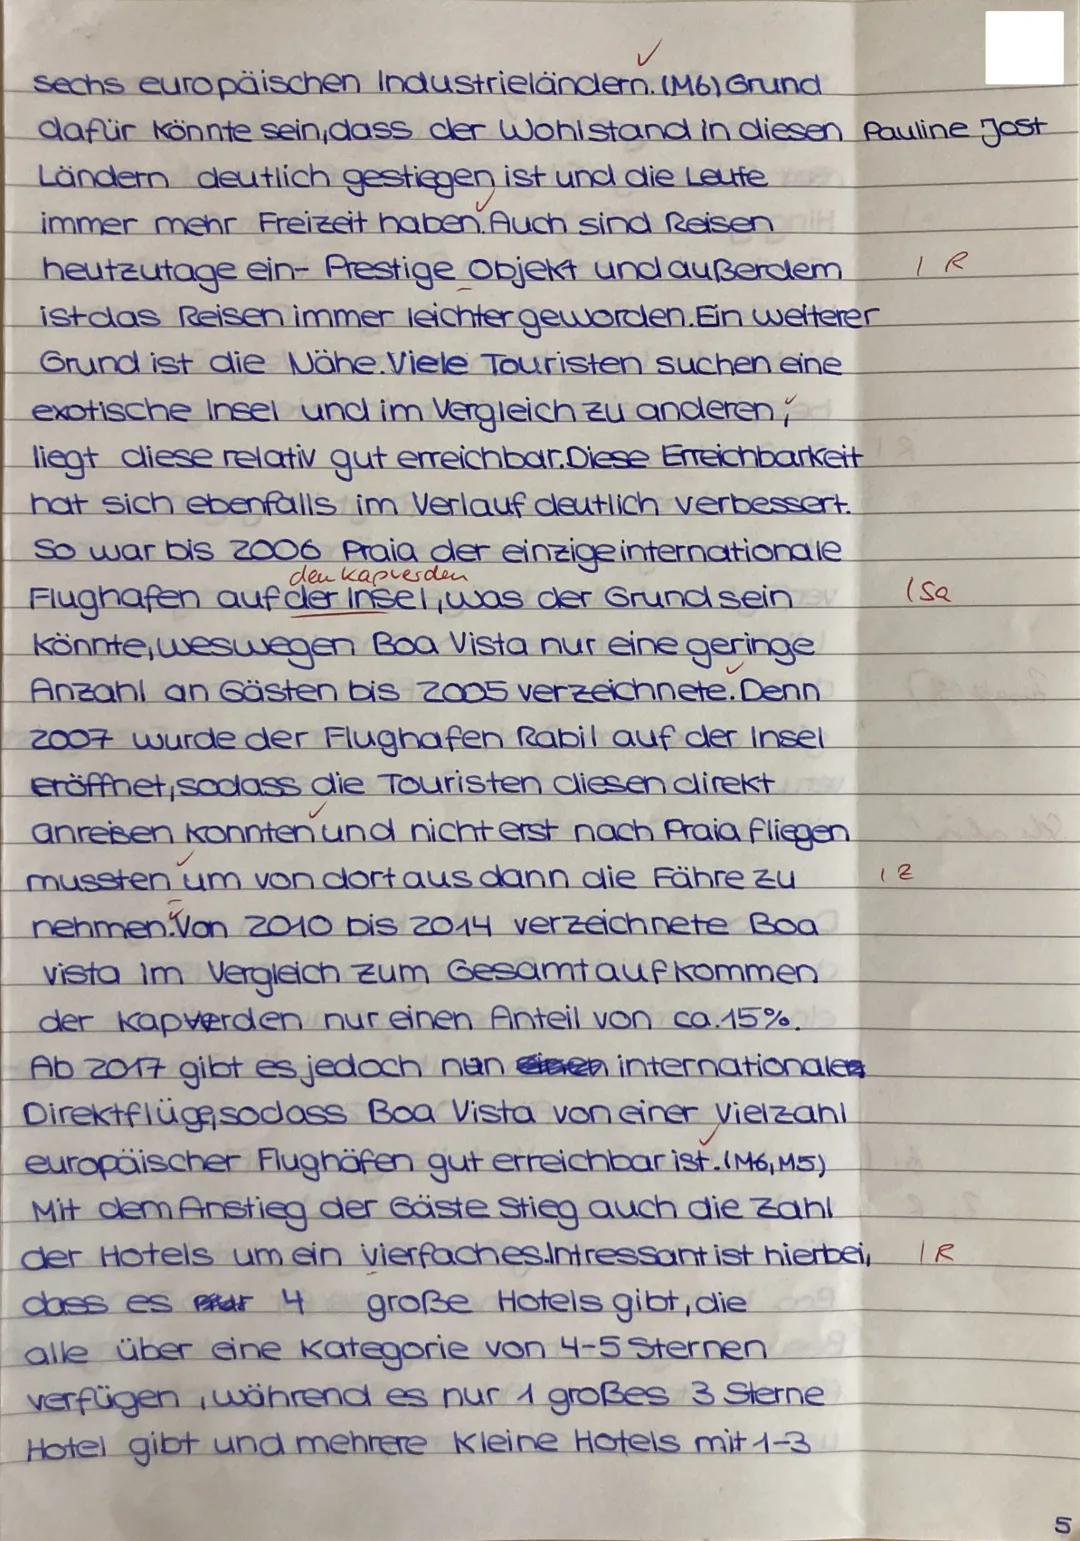 sechs europäischen Industrieländern. (M6) Grund
dafür könnte sein, dass der Wohlstand in diesen Pauline Jost
Ländern deutlich gestiegen ist und die Leute
immer mehr Freizeit haben. Auch sind Reisen
heutzutage ein- Prestige Objekt und außerdem I R
ist das Reisen immer leichter geworden. Ein weiterer
Grund ist die Nähe. Viele Touristen suchen eine
exotische Insel und im Vergleich zu anderen,
liegt diese relativ gut erreichbar. Diese Erreichbarkeit
hat sich ebenfalls im Verlauf deutlich verbessert.
So war bis 2006 Praia der einzige internationale
den Kapverden
Flughafen auf der Insel, was der Grund sein I Sa
könnte, weswegen Boa Vista nur eine geringe
Anzahl an Gästen bis 2005 verzeichnete. Denn
2007 wurde der Flughafen Rabil auf der Insel
eröffnet, sodass die Touristen diesen direkt
anreisen konnten und nicht erst nach Praia fliegen
mussten um von dort aus dann die Fähre zu I Z
nehmen. Von 2010 bis 2014 verzeichnete Boa
vista im Vergleich zum Gesamtaufkommen
der Kapverden nur einen Anteil von ca. 15%.
Ab 2017 gibt es jedoch nun internationale
Direktflüge, sodass Boa Vista von einer Vielzahl
europäischer Flughäfen gut erreichbar ist. (M6, M5)
Mit dem Anstieg der Gäste Stieg auch die Zahl
der Hotels um ein vierfaches. Intressant ist hierbei, I R
dass es 4 große Hotels gibt, die
alle über eine Kategorie von 4-5 Sternen
verfügen, während es nur 1 großes 3 Sterne
Hotel gibt und mehrere kleine Hotels mit 1-3
5